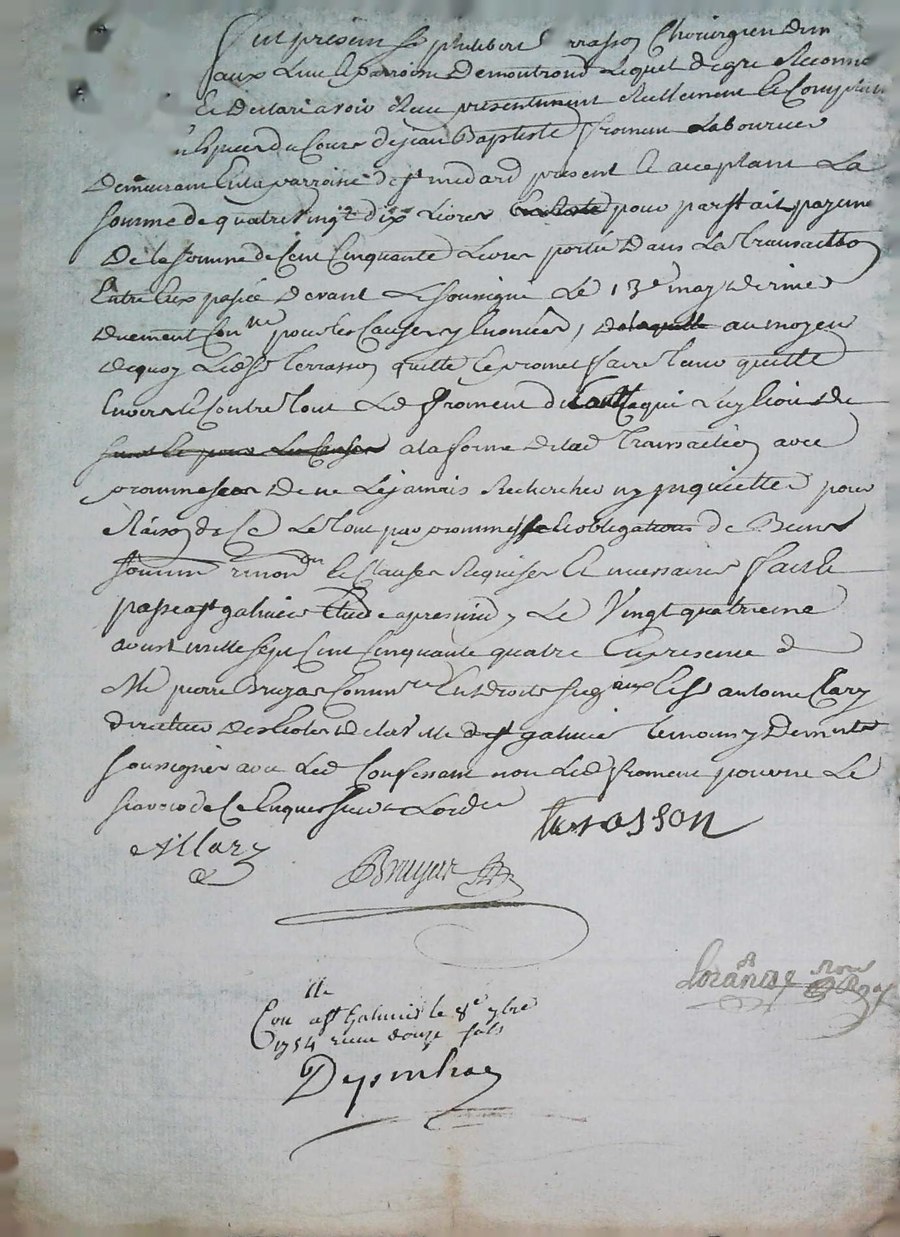 Fut présent Sr philibert rrasson Chirurgien dem
aux lieu & parroisse de montrond lequel de gré Reconnu
Et declaré avoir Receu présentement Réellement & Comptan
espèces du Cours de jean Baptiste froment Laboureur
Demeurant En la parroisse de st medard présent & acceptant La
somme de quatre vingt dix Livres pour parfait payeme
De la somme de Cent Cinquante Livres portée Dans La transaction
Entre Eux passée Devant Le soussigné Le 13e may dernier
duement Con lle pour les Causes y Enoncées, de laquelle au moyen
dequoy Ledt Sr terrasson quitte & promet faire tenir quitte
Envers & Contre tout Led froment de tout Ce qui
a la forme de lad transaction avec
promesse De ne Le jamais Rechercher ny inquietter pour
Raison de Ce Le tout par promesse obligations de Biens
soumm renon on & Clauses Requises & necessaires fait &
passé a st galmier Etude apres midy Le Vingt quatrieme
aoust mille sept Cent Cinquante quatre En présence de
Me pierre Bruyas Comm re Es droits seigaux & Sr antoine Allary
directeur des Ecoles de la Ville de st galmier temoins
soussignés avec Led Confessant non Led froment pour ne Le
scavoir de Ce Enquis
terrasson
Allary
Bruyas
Loranse nore Royal
lle
Con a st Galmier le 8e 7bre
1754 receu douze sols
Depomhac